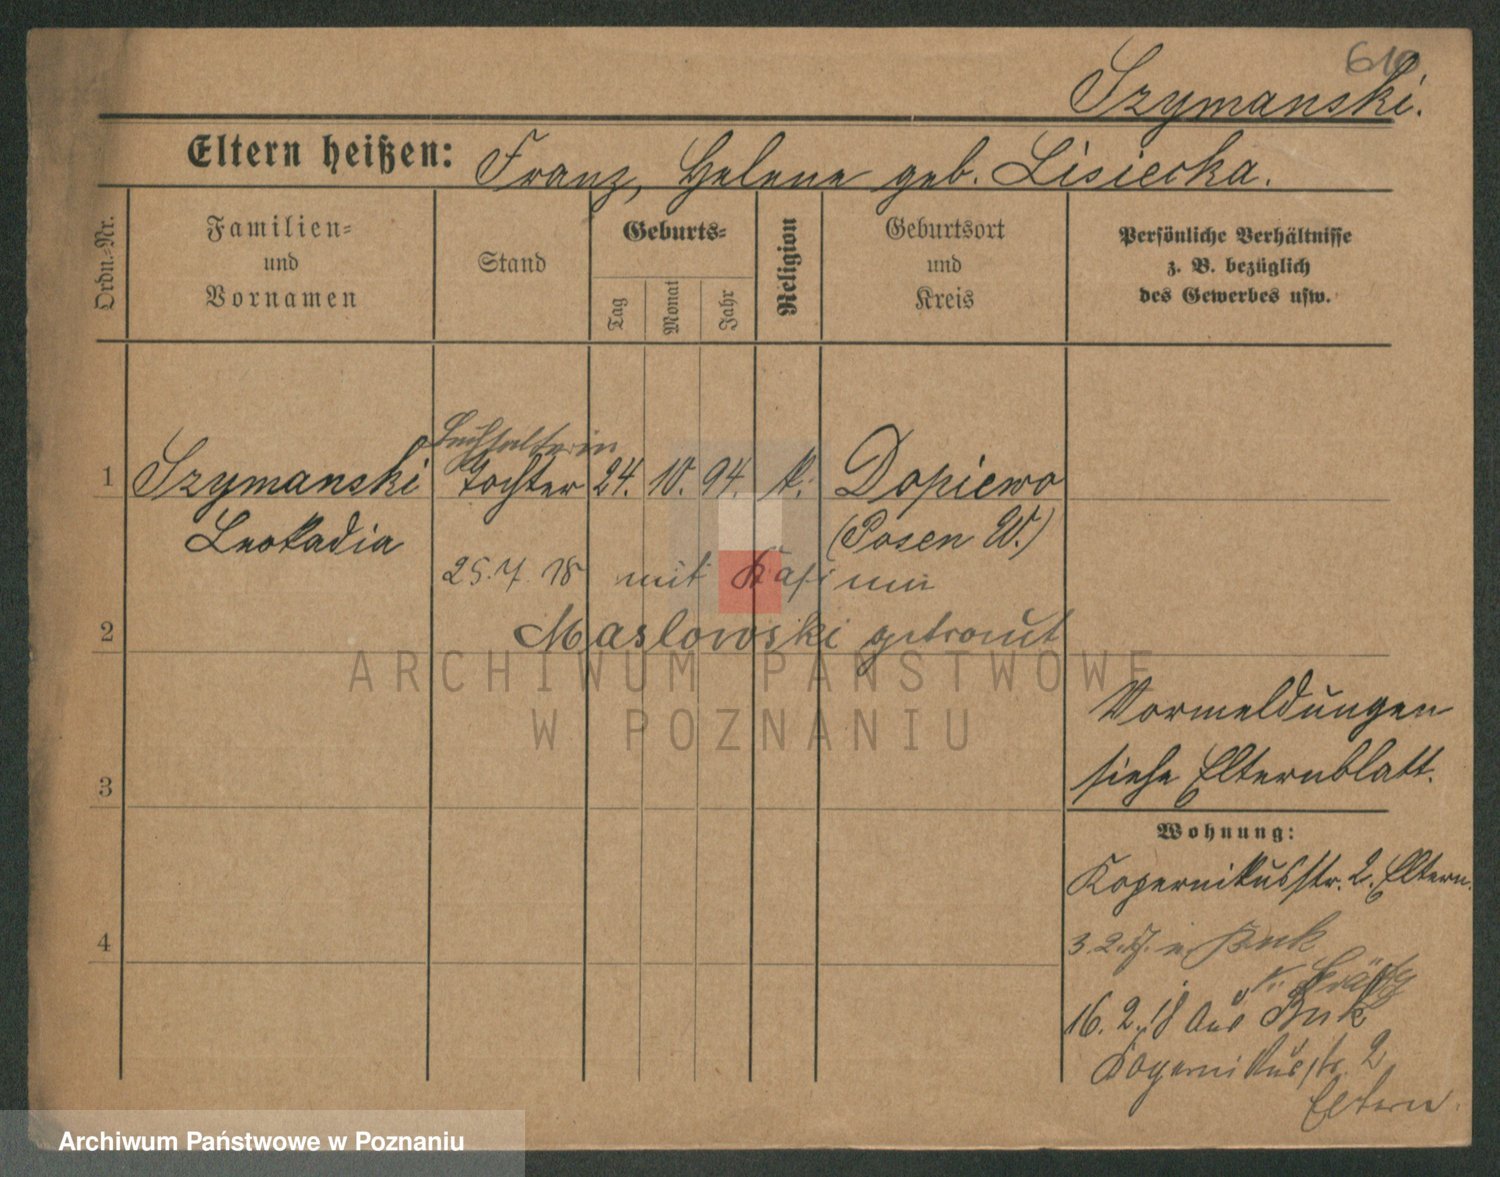 Szymanski.
Eltern heißen: Franz, Helene geb. Lisiecka.
Ordn.-Nr.
Familien-
und
Vornamen
Stand
Geburts-
Tag
Monat
Jahr
Religion
Geburtsort
und
Kreis
Persönliche Verhältnisse
z. B. bezüglich
des Gewerbes usw.
Buchhalterin
1 Szymanski Tochter 24. 10. 94. k. Dopiewo
Leokadia (Posen W.)
25.7.18 mit Kasimir
2 Maslowski getraut
ARCHIWUM PAŃSTWOWE
W POZNANIU
Vormeldungen
3 siehe Elternblatt.
Wohnung:
Kopernikusstr. 2. Eltern.
4
Buk
16. 2. 18 aus Buk
Kopernikusstr. 2
Eltern.
Archiwum Państwowe w Poznaniu